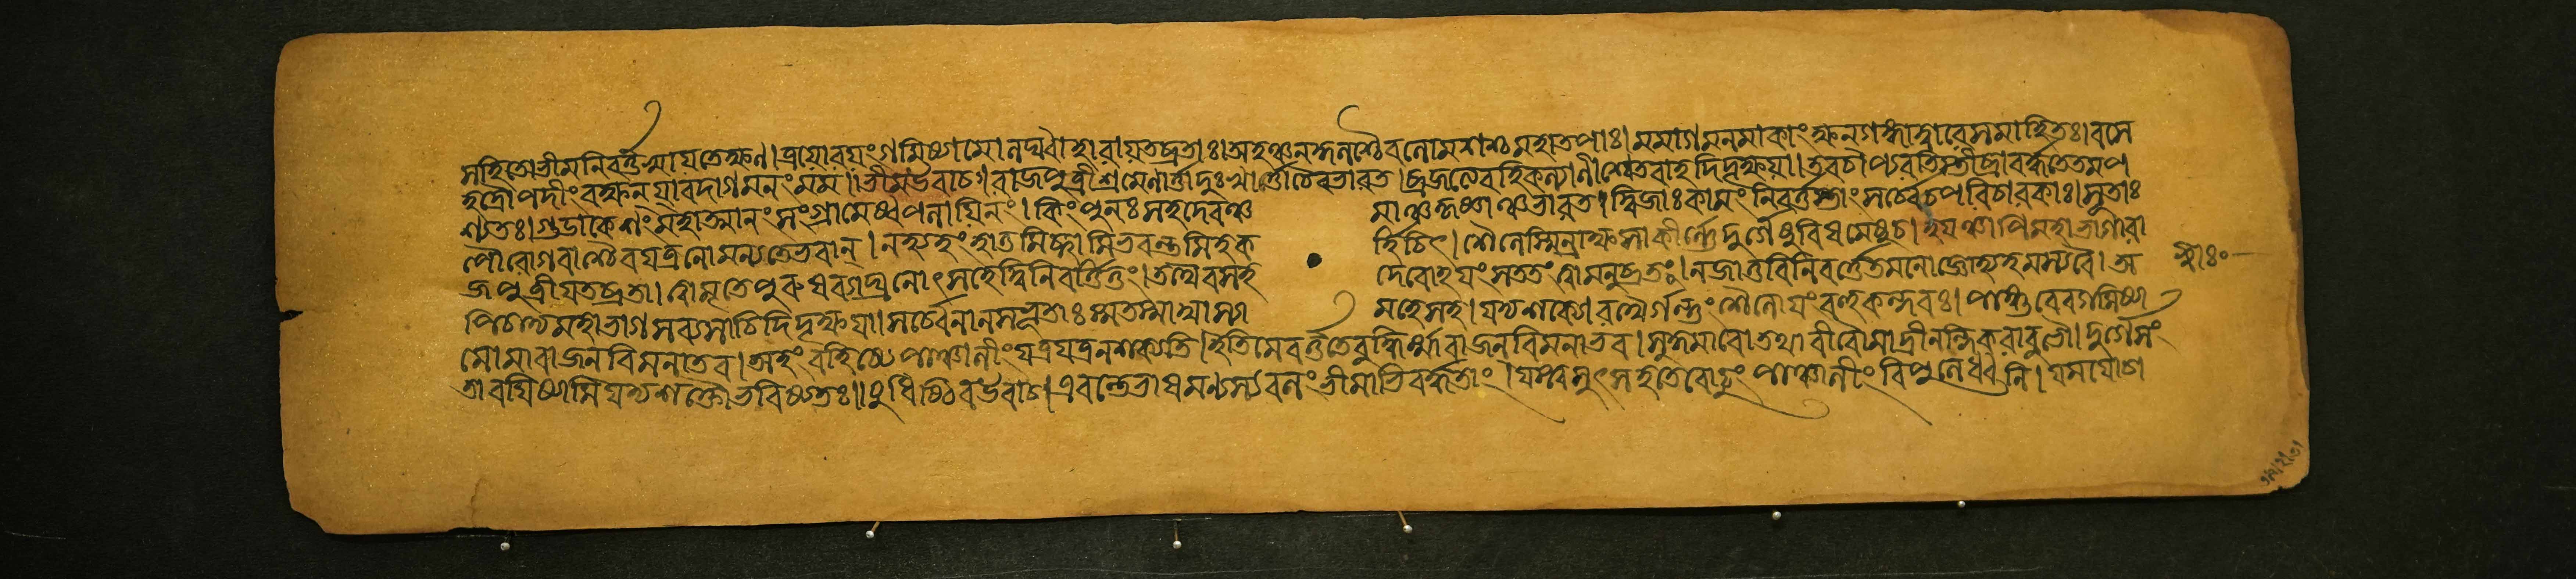 সহিতো ভীমনিবর্ত্তস্বাযতেক্ষণ। ত্রযোবযং গমিষ্যামোলঘ্বাহারাযতব্রতাঃ। অহঞ্চনকুলশ্চৈবলোমশশ্চমহাতপাঃ। মমাগমনমাকাংক্ষন্গঙ্গাদ্বারেসমাহিতঃ। বসে
হদ্রৌপদীংরক্ষন্যাবদাগমনংমম॥ ভীমউবাচ। রাজপুত্রীশ্রমেণার্ত্তাদুঃখার্ত্তাচৈবভারত। ব্রজত্যেবহিকল্যাণীশ্বেতবাহদিদৃক্ষযা॥ তবচাপ্যরতিস্তীব্রাবর্দ্ধতেতমপ
শ্যতঃ। গুডাকেশংমহাত্মানংসংগ্রামেষ্বপলাযিনং। কিংপুনঃসহদেবঞ্চ মাঞ্চকৃষ্ণাঞ্চভারত। দ্বিজাঃকামংনিবর্ত্তন্তাংসর্ব্বেচপরিচারকাঃ। সূতাঃ
পৌরোগবাশ্চৈবযত্রনোমন্যতেভবান্। নহ্যহংহাতুমিচ্ছামিভবন্তমিহক র্হিচিৎ। শৈলেস্মিন্রাক্ষসাকীর্ণ্ণেদুর্গেষুবিষমেষুচ। ইযঞ্চাপিমহাভাগারা
জপুত্রীযতব্রতা। ত্বামৃতেপুরুষব্যাঘ্রনোৎসহেদ্বিনিবর্ত্তিতুং। তথৈবসহ দেবোহযংসততংত্বামনুব্রতঃ। নজাতুবিনিবর্ত্তেতমনোজ্ঞোহ্যহমস্যবৈ। অ
পিচাত্রমহাভাগসব্যসাচিদিদৃক্ষযা। সর্ব্বেলালসভূতাঃস্মতস্মাদ্যাস্যা মহেসহ। যদ্যশক্যোরথৈর্গন্তুংশৈলোযংবহুকন্দরঃ। পদ্ভিরেবগমিষ্যা
মোমারাজন্বিমনাভব। অহংবহিষ্যেপাঞ্চালীংযত্রযত্রনশক্ষ্যতি। ইতিমেবর্ত্ততেবুদ্ধির্ম্মারাজন্বিমনাভব। সুকুমারৌতথাবীরৌমাদ্রীনন্দিকরাবুভৌ। দুর্গেসং
তারযিষ্যামিযদ্যশক্তৌভবিষ্যতঃ॥ যুধিষ্ঠিরউবাচ। এবন্তেভাষমাণস্যবলংভীমাভিবর্দ্ধতাং। যস্ত্বমুৎসহসেবোঢুংপাঞ্চালীংবিপুলেধ্বনি।